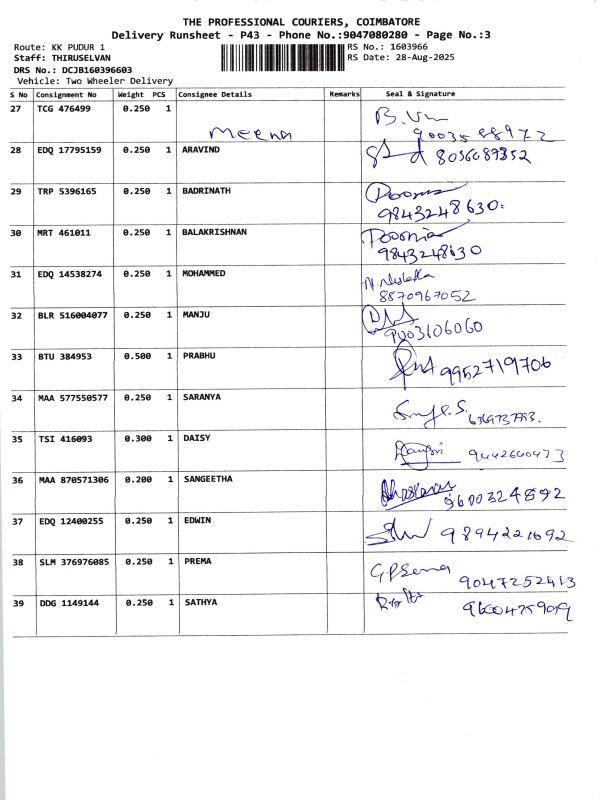 THE PROFESSIONAL COURIERS, COIMBATORE
Delivery Runsheet - P43 - Phone No.:9047080280 - Page No.:3
Route: KK PUDUR 1 RS No.: 1603966
Staff: THIRUSELVAN RS Date: 28-Aug-2025
DRS No.: DCJB160396603
Vehicle: Two Wheeler Delivery
S No Consignment No Weight PCS Consignee Details Remarks Seal & Signature
27 TCG 476499 0.250 1
Meena
28 EDQ 17795159 0.250 1 ARAVIND 8056089352
29 TRP 5396165 0.250 1 BADRINATH
9843248630
30 MRT 461011 0.250 1 BALAKRISHNAN
31 EDQ 14538274 0.250 1 MOHAMMED
8870967052
32 BLR 516004077 0.250 1 MANJU
9003106060
33 BTU 384953 0.500 1 PRABHU
9952719706
34 MAA 577550577 0.250 1 SARANYA
35 TSI 416093 0.300 1 DAISY
36 MAA 870571306 0.200 1 SANGEETHA
9600324892
37 EDQ 12400255 0.250 1 EDWIN
9894221692
38 SLM 376976085 0.250 1 PREMA
9047252413
39 DDG 1149144 0.250 1 SATHYA